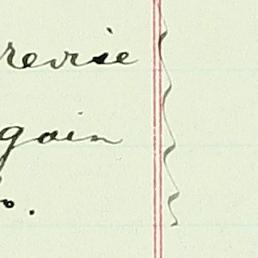 revise
gain
o.